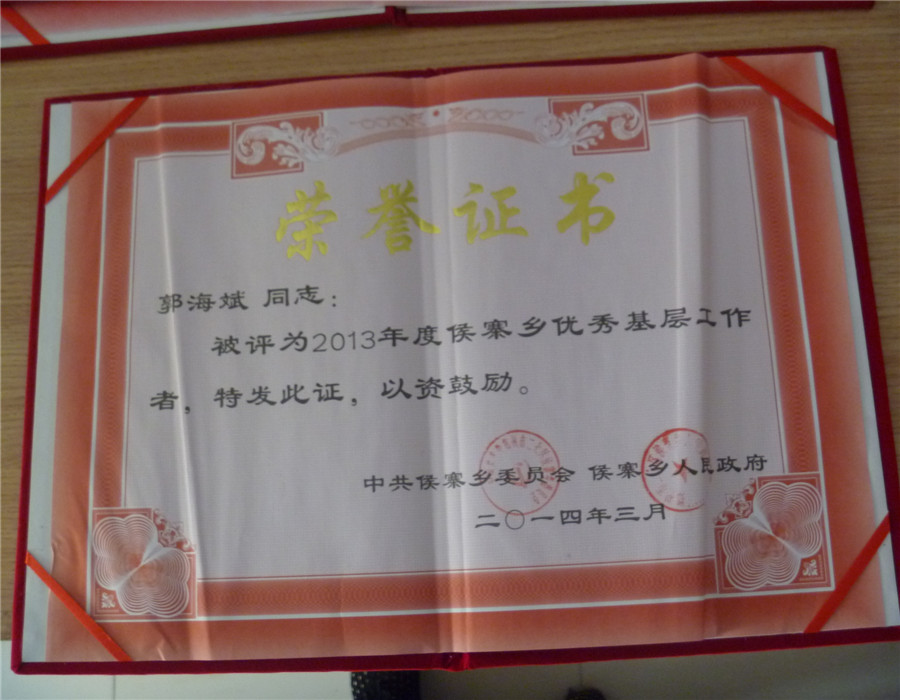 荣誉证书
郭海斌 同志：
被评为2013年度侯寨乡优秀基层工作
者，特发此证，以资鼓励。
中共侯寨乡委员会 侯寨乡人民政府
二〇一四年三月